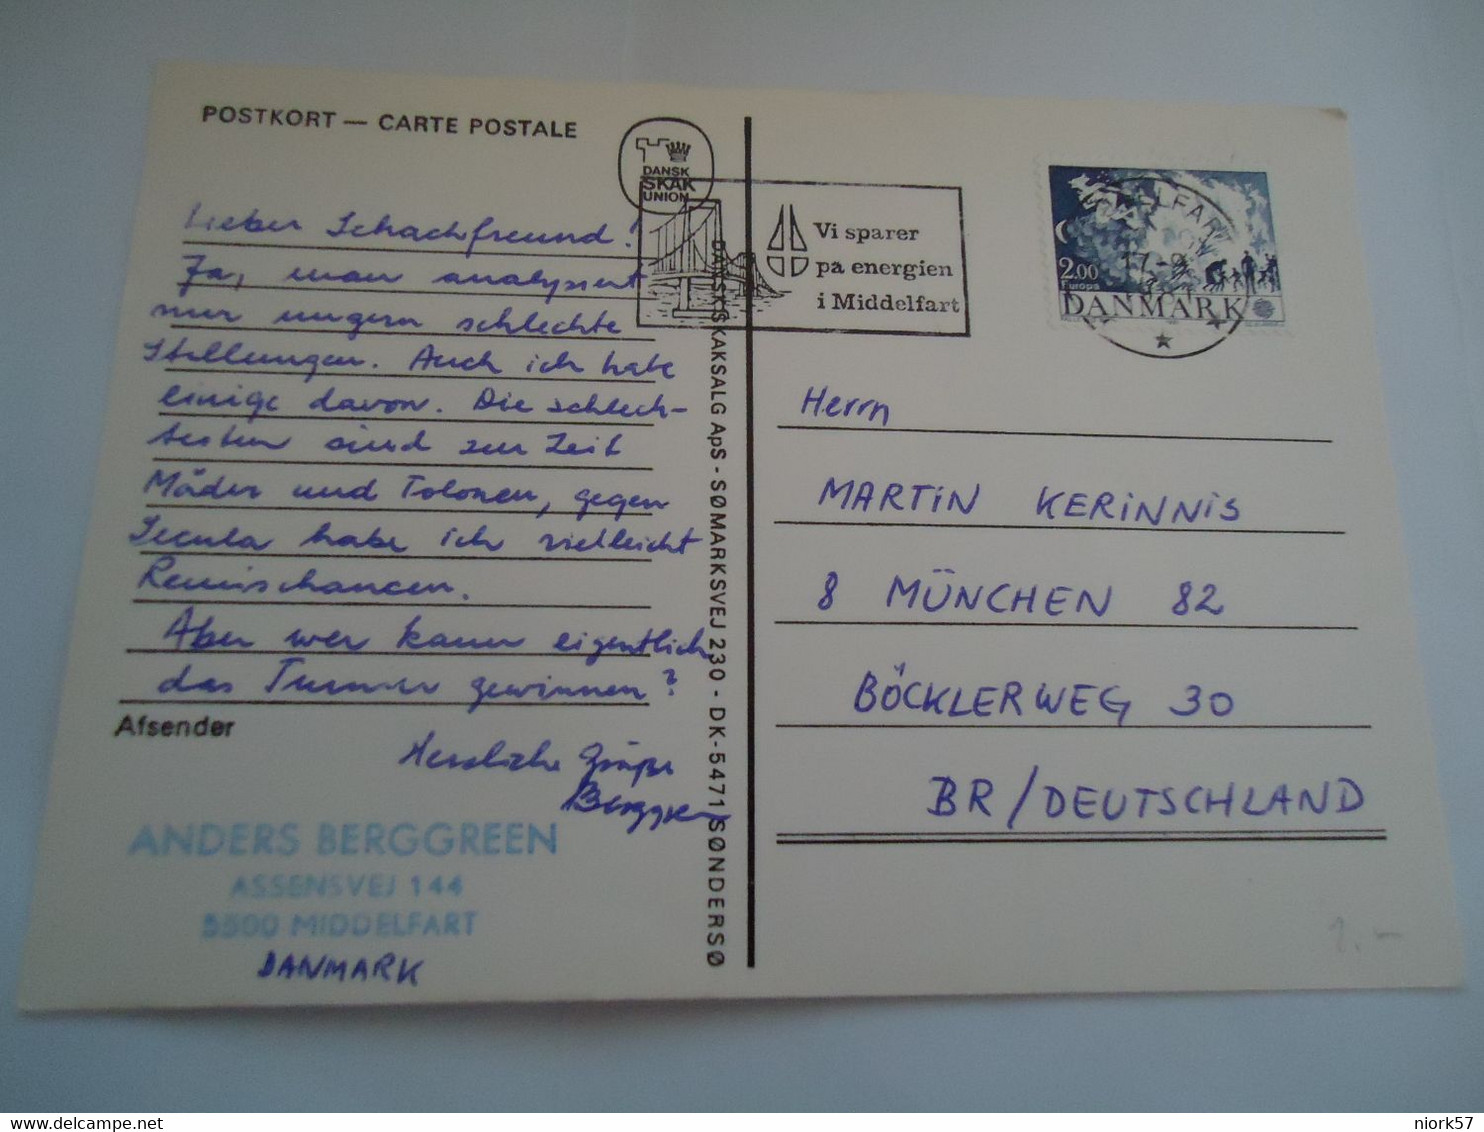 POSTKORT — CARTE POSTALE
DANSK
SKAK
UNION
Lieber Schachfreund!
Ja, man analysiert
nur ungern schlechte
Stellungen. Auch ich habe
einige davon. Die schlech-
testen sind zur Zeit
Mäder und Tolonen, gegen
Secula habe ich vielleicht
Remischancen.
Aber wer kann eigentlich
das Turnier gewinnen?
Afsender
Herzliche Grüße
Berggreen
ANDERS BERGGREEN
ASSENSVEJ 144
5500 MIDDELFART
DANMARK
DANSK SKAKSALG ApS - SØMARKSVEJ 230 - DK-5471 SØNDERSØ
Vi sparer
på energien
i Middelfart
MIDDELFART
17-9
2.00
Europa
DANMARK
Herrn
MARTIN KERINNIS
8 MÜNCHEN 82
BÖCKLERWEG 30
BR/DEUTSCHLAND
2.-
niork57